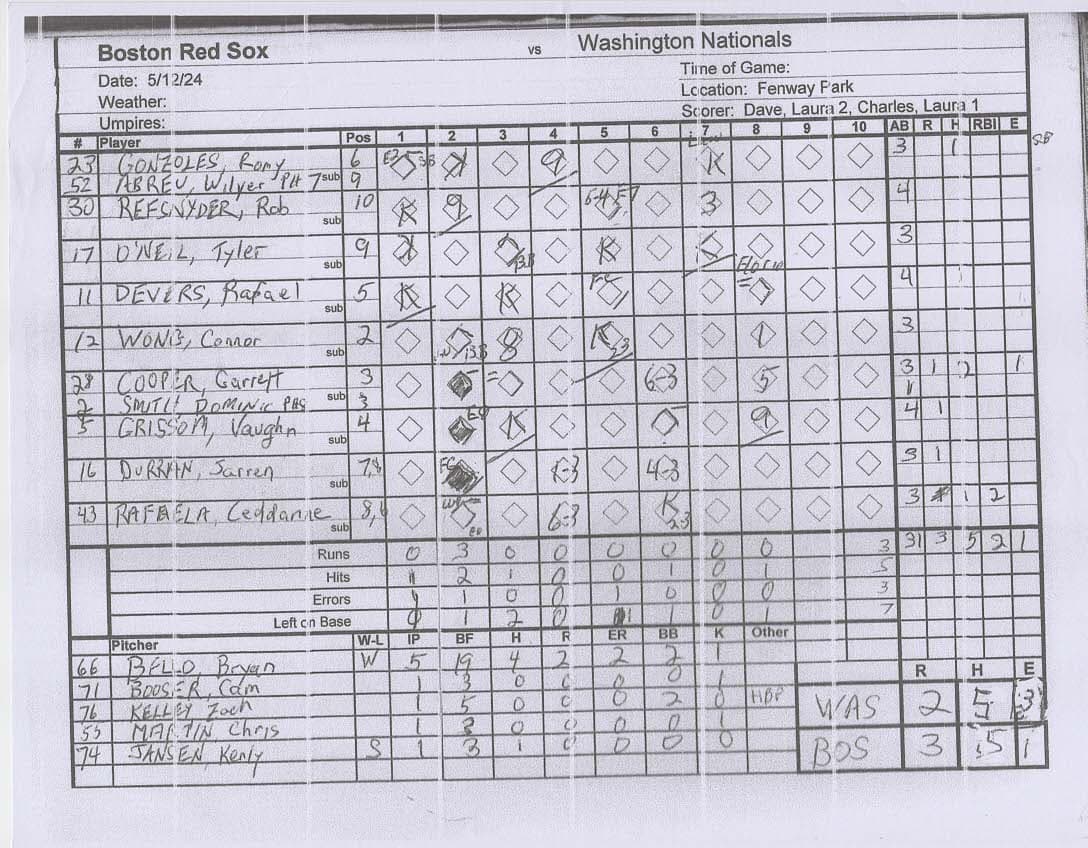 Boston Red Sox vs Washington Nationals
Date: 5/12/24 Time of Game:
Weather: Location: Fenway Park
Umpires: Scorer: Dave, Laura 2, Charles, Laura 1
# Player Pos 1 2 3 4 5 6 7 8 9 10 AB R H RBI E SB
23 GONZOLES, Romy 6 K 9 K 3 1
52 ABREU, Wilyer PH 7 sub 9
30 REFSNYDER, Rob 10 K 9 3 4
sub
17 O'NEIL, Tyler 9 K BB K K 3
sub
11 DEVERS, Rafael 5 K K FC 4
sub
12 WONG, Connor 2 8 K 23 1 3
sub
28 COOPER, Garrett 3 6-3 5 3 1 2 1
2 SMITH, DOMINIC PH8 sub 3 1
5 GRISSOM, Vaughn 4 K 9 4 1
sub
16 DURRAN, Jarren 7,8 FC 4-3 3 1
sub
43 RAFAELA, Ceddanne 8,6 6-3 K 23 3 1 2
sub
Runs 0 3 0 0 0 0 0 0 3 31 3 5 2 1
Hits 1 2 1 0 0 1 0 1 5
Errors 1 1 0 0 1 0 0 0 3
Left on Base 1 2 0 1 1 0 1 7
Pitcher W-L IP BF H R ER BB K Other
66 BELLO, Bryan W 5 19 4 2 2 2 1
71 BOOSER, Cam 1 3 0 0 0 0 1
76 KELLEY Zach 1 5 0 0 0 2 0 HBP
55 MARTIN Chris 1 3 0 0 0 0 1
74 JANSEN, Kenly S 1 3 1 0 0 0 0
R H E
WAS 2 5 3
BOS 3 5 1